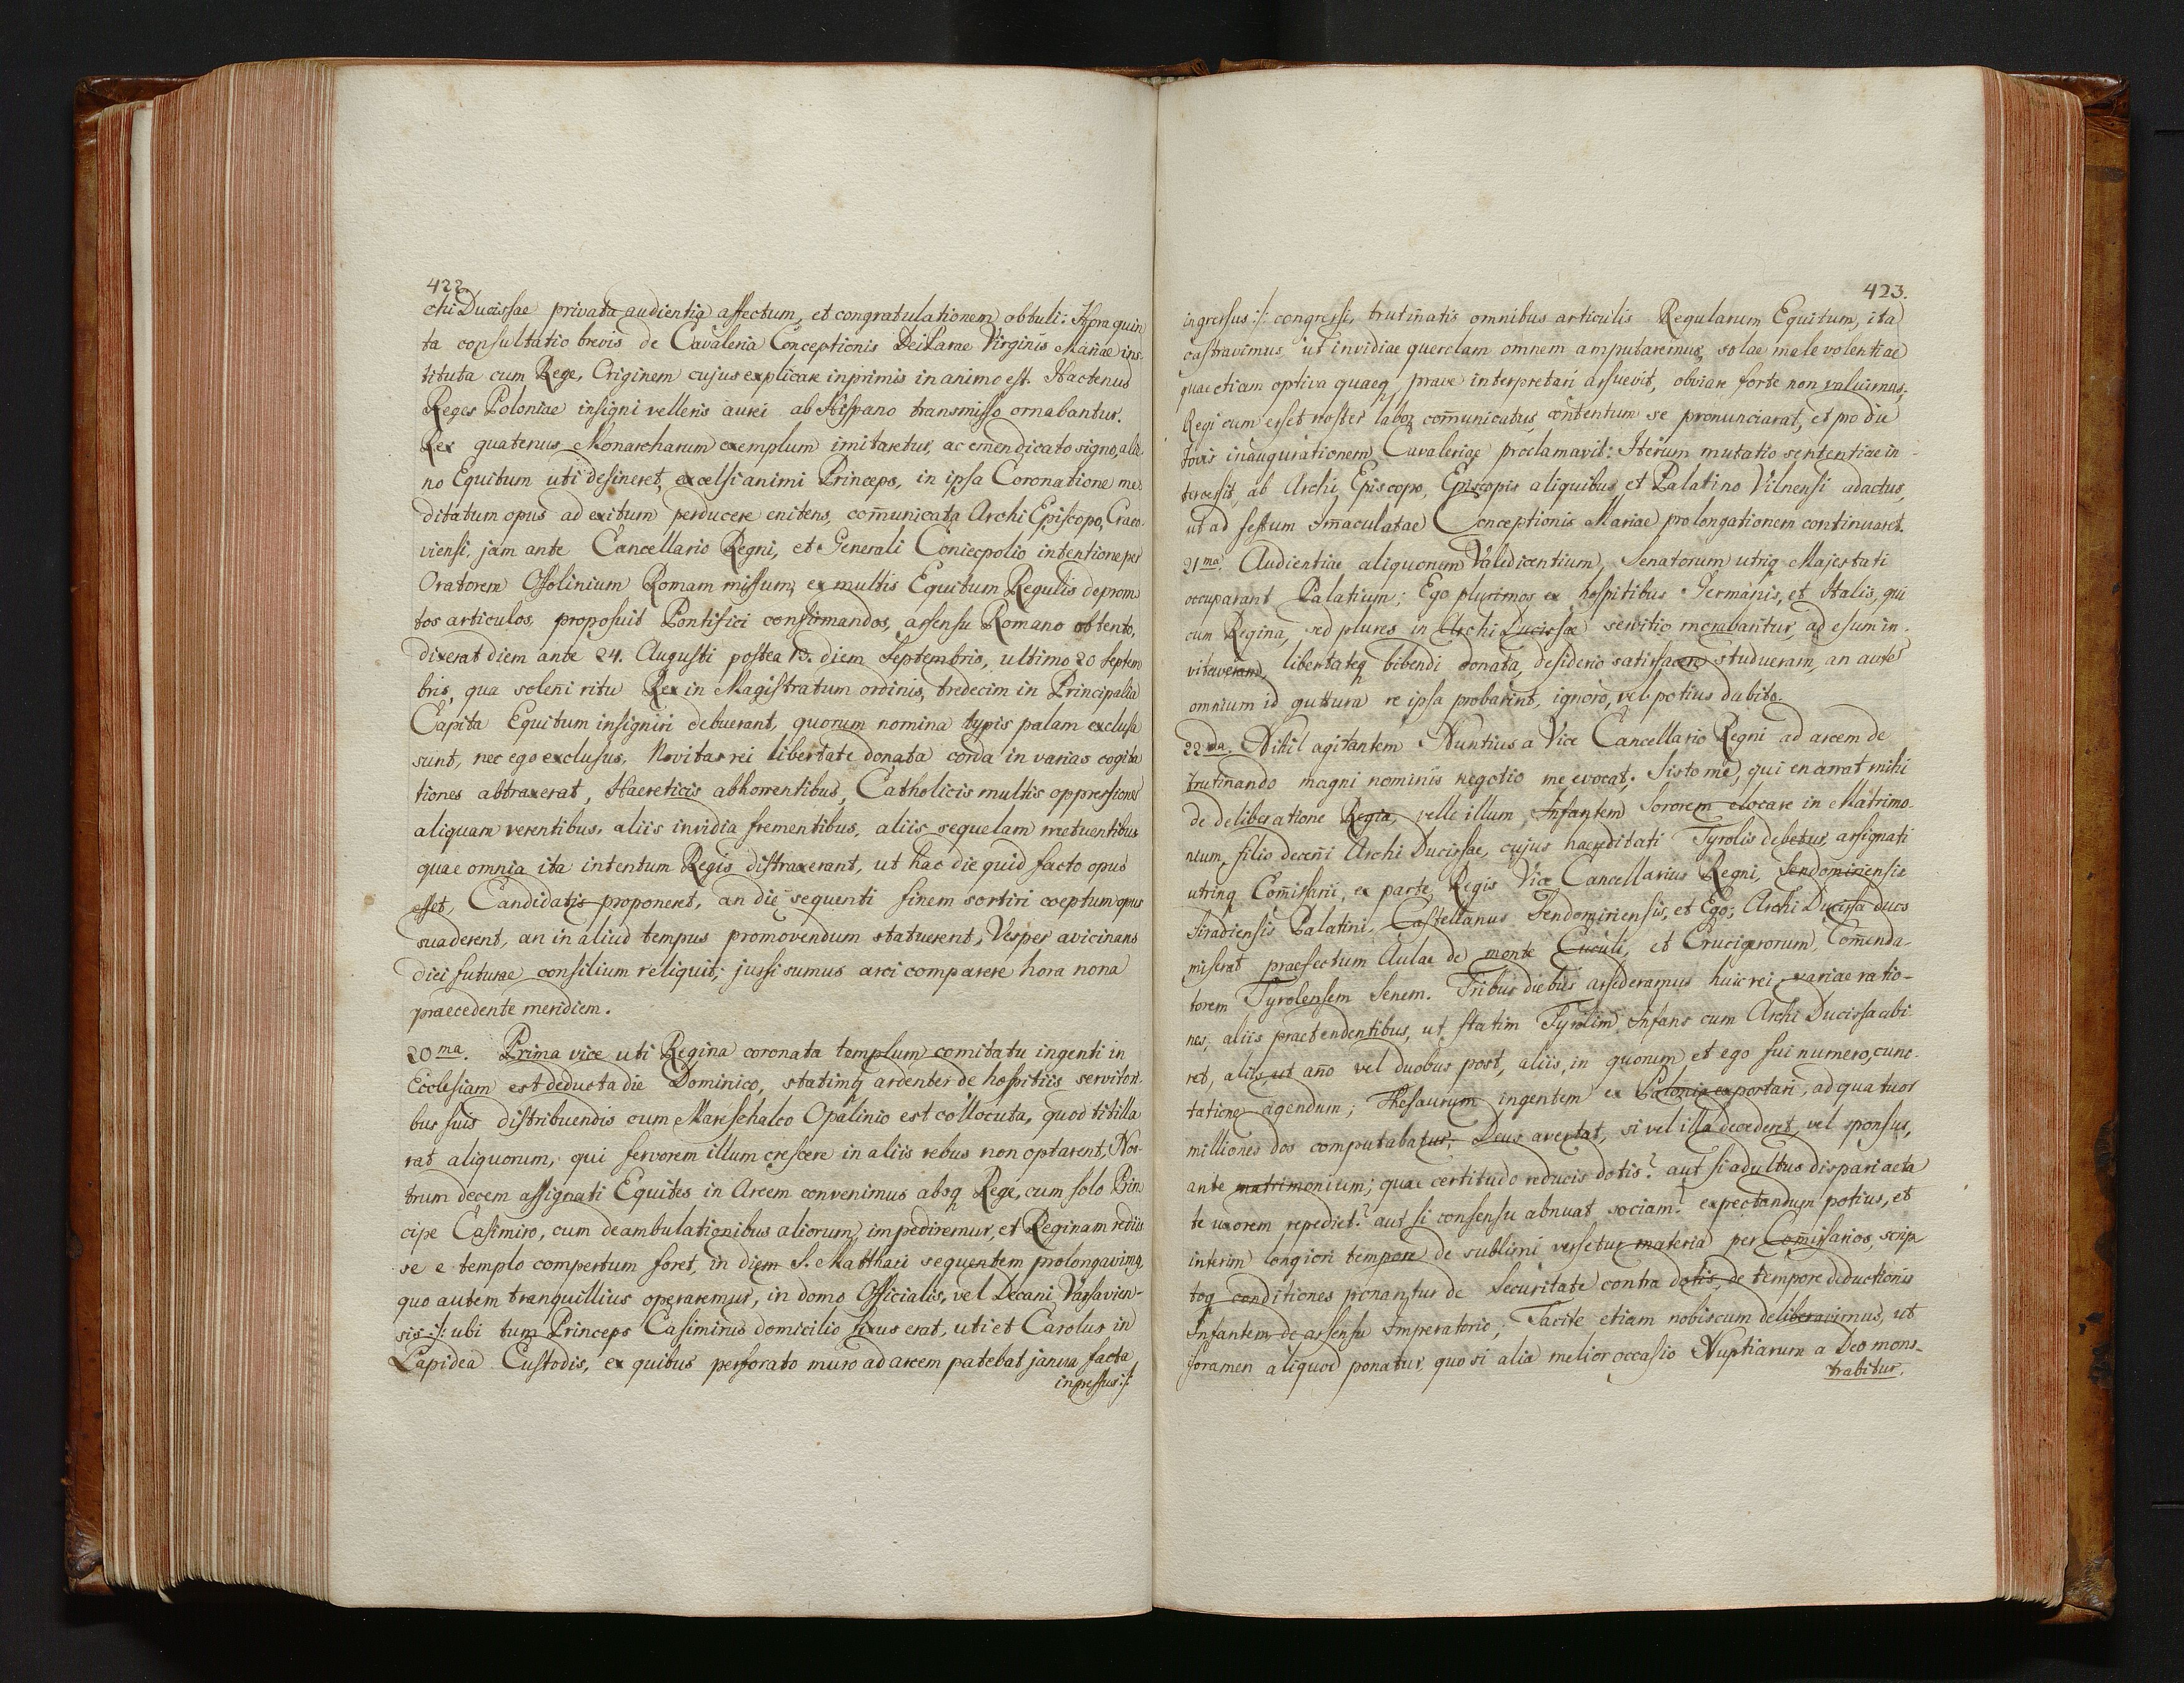 422.
chi Ducissae privata audientia affectum, et congratulationem obtuli: Hora quin
ta consultatio brevis de Cavaleria Conceptionis DeiParae Virginis Mariae ins
tituta cum Rege, Originem cujus explicare inprimis in animo est. Hactenus
Reges Poloniae insigni velleris aurei ab Hispano transmisso ornabantur.
Rex quatenus Monarcharum exemplum imitaretur, ac emendicato signo, alie
no Equitum uti desineret, excelsi animi Princeps, in ipsa Coronatione me
ditatum opus ad exitum perducere enitens, com̄unicata Archi Episcopo, Craco
viensi, jam ante Cancellario Regni, et Generali Coniecpolio intentione per
Oratorem Ossolinium Romam missum, ex multis Equitum Regulis deprom
tos articulos, proposuit Pontifici confirmandos, assensu Romano obtento,
dixerat diem ante 24. Augusti postea 13. diem Septembris, ultimo 20 Septem
bris, qua soleni ritu Rex in Magistratum ordinis, tredecim in Principalia
Capita Equitum insigniri debuerant, quorum nomina typis palam exclusa
sunt, nec ego exclusus. Novitas rei libertate donata corda in varias cogita
tiones abtraxerat, Haereticis abhorrentibus, Catholicis multis oppressionem
aliquam verentibus, aliis invidia frementibus, aliis sequelam metuentibus
quae omnia ita intentum Regis distraxerant, ut hac die quid facto opus
esset, Candidatis proponeret, an die sequenti finem sortiri coeptum opus
suaderent, an in aliud tempus promovendum statuerent, Vesper avicinans
diei futurae consilium reliquit; jussi sumus arci comparere hora nona
praecedente meridiem.
20ma. Prima vice uti Regina coronata templum comitatu ingenti in
Ecclesiam est deducta die Dominico, statimq ardenter de hospitiis servitori
bus suis distribuendis cum Mareschalco Opalinio est collocuta, quod titilla
rat aliquorum, qui fervorem illum crescere in aliis rebus non optarent, Nos
trum decem assignati Equites in Arcem convenimus absq Rege, cum solo Prin
cipe Casimiro, cum deambulationibus aliorum impediremur, et Reginam rediis
se e templo compertum foret, in diem S. Matthaei sequentem prolongavimq,
quo autem tranquillius operaremur, in domo Officialis, vel Decani Varsavien-
sis :/: ubi tum Princeps Casimirus domicilio fixus erat, uti et Carolus in
Lapidea Custodis, ex quibus perforato muro ad arcem patebat janua facta
ingressus :/:
423.
ingressus :/: congressi, trutinatis omnibus articulis Regularum Equitum, ita
castravimus, ut invidiae querelam omnem amputaremus, solae malevolentiae
quae etiam optiva quaeq prave interpretari assuevit, obviare forte non valuimus,
Regi cum esset noster labor com̄unicatus, contentum se pronunciarat, et pro die
Jovis inaugurationem Cavaleriae proclamavit: Iterum mutatio sententiae in-
tercessit, ab Archi Episcopo, Episcopis aliquibus et Palatino Vilnensi adactus,
ut ad festum Im̄aculatae Conceptionis Mariae prolongationem continuaret.
21ma. Audientiae aliquorum Valedicentium, Senatorum utriq Majestati
occuparant Palatium; Ego plurimos ex hospitibus Germanis, et Italis, qui
cum Regina, sed plures in Archi Ducissae servitio morabantur, ad esum in-
vitaveram, libertateq bibendi donata, desiderio satisfacere studueram, an aurse
omnium id guttura re ipsa probarint, ignoro, vel potius dubito.
22da. Nihil agitantem Nuntius a Vice Cancellario Regni ad arcem de
trutinando magni nominis negotio me evocat: Sisto me, qui enarrat mihi
de deliberatione Regia, velle illum Infantem Sororem elocare in Matrimo-
nium filio decen̄i Archi Ducissae, cujus haereditati Tyrolis debetur, assignati
utrinq Com̄issarii, ex parte Regis Vice Cancellarius Regni, Sendomiriensis
Siradiensis Palatini, Castellanus Sendomiriensis, et Ego; Archi Ducissa duos
miserat praefectum Aulae de monte Cuculi, et Crucigerorum, Com̄enda-
torem Tyrolensem Senem. Tribus diebus assederamus huic rei, variae ratio-
nes, aliis praetendentibus, ut statim Tyrolim Infans cum Archi Ducissa abi
ret, aliis, ut an̄o vel duobus post, aliis, in quorum et ego fui numero, cunc-
tatione agendum; Thesaurum ingentem ex Polonia exportari, ad quatuor
milliones dos computabatur; Deus avertat, si vel illa decederet, vel sponsus,
ante matrimonium; quae certitudo reducis dotis? aut si adultus dispari aeta
te uxorem repediet? aut si consensu abnuat sociam? expectandum potius, et
interim longiori tempore de sublimi versetur materia per Com̄issarios, scrip
toq conditiones ponantur de Securitate contra dotis, de tempore deductionis
Infantem, de assensu Imperatorio; Tacite etiam nobiscum deliberavimus, ut
foramen aliquod ponatur, quo si alia melior occasio Nuptiarum a Deo mons-
trabitur.